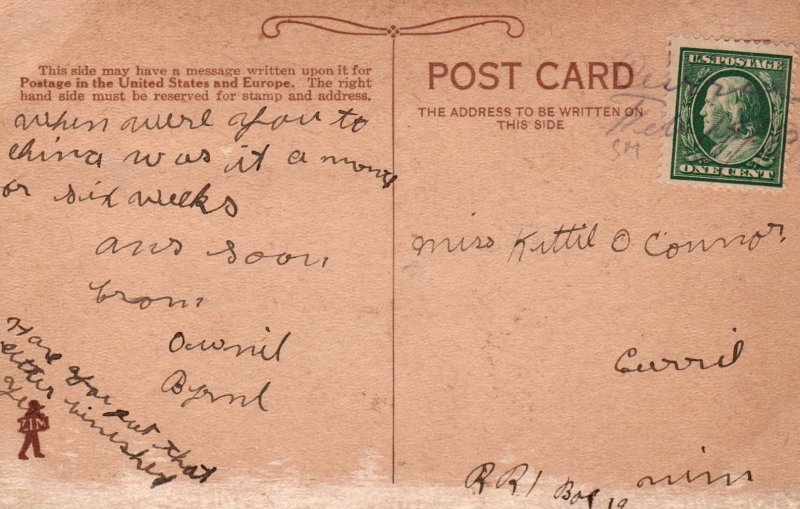 This side may have a message written upon it for
Postage in the United States and Europe. The right
hand side must be reserved for stamp and address.
when were you to
china was it a month
or six weeks
ans soon
from
Ownil
Byrnl
Have you got that
letter finished
yet
ZIM
POST CARD
THE ADDRESS TO BE WRITTEN ON
THIS SIDE
U.S. POSTAGE
ONE CENT
Miss Kittil O Connor
Curril
minn
RR1 Box 19